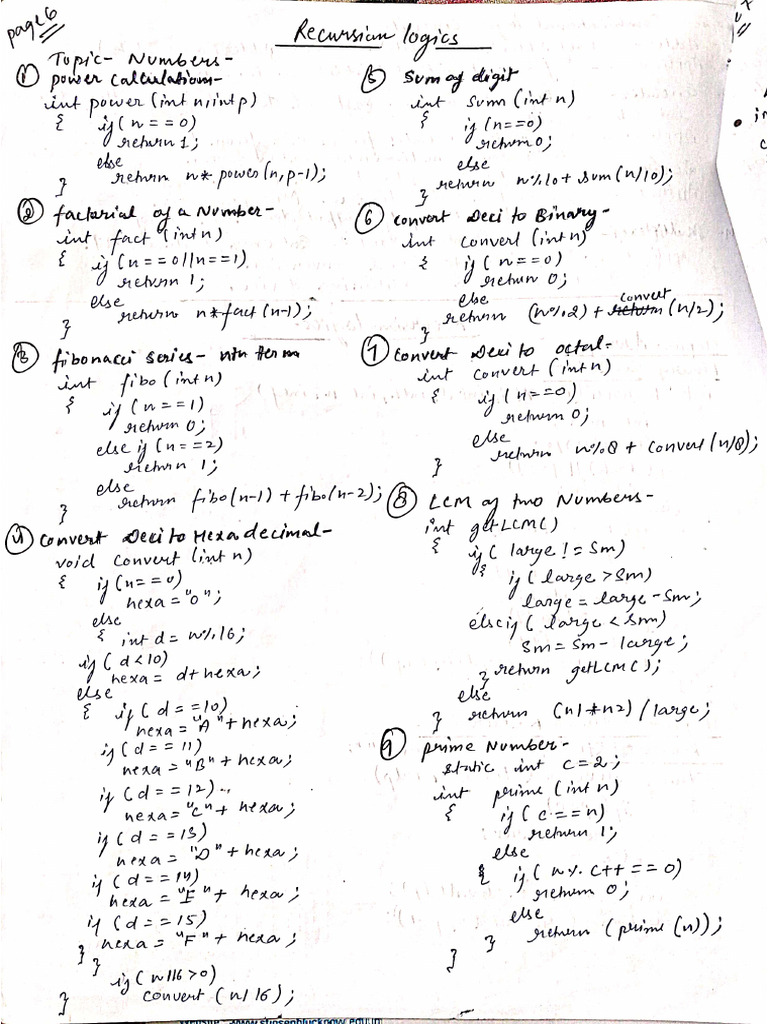 page 6
Recursion logics
Topic- Numbers-
① power calculation-
int power (int n, int p)
{ if (n == 0)
return 1;
else
return n* power(n, p-1);
}
② factorial of a Number-
int fact (int n)
{ if (n == 0 || n == 1)
return 1;
else
return n*fact (n-1);
}
③ fibonacci series- nth term
int fibo (int n)
{ if (n == 1)
return 0;
else if (n == 2)
return 1;
else
return fibo(n-1) + fibo(n-2);
}
④ convert Deci to Hexadecimal-
void convert (int n)
{ if (n == 0)
hexa = "0";
else
{ int d = n%16;
if (d < 10)
hexa = d + hexa;
else
{ if (d == 10)
hexa = "A" + hexa;
if (d == 11)
hexa = "B" + hexa;
if (d == 12)
hexa = "C" + hexa;
if (d == 13)
hexa = "D" + hexa;
if (d == 14)
hexa = "E" + hexa;
if (d == 15)
hexa = "F" + hexa;
}
}
if (n/16 > 0)
convert (n/16);
}
⑤ Sum of digit
int sum (int n)
{ if (n == 0)
return 0;
else
return n%10 + sum (n/10);
}
⑥ convert Deci to Binary-
int convert (int n)
{ if (n == 0)
return 0;
else
return (n%2) + return convert (n/2);
}
⑦ convert Deci to octal-
int convert (int n)
{ if (n == 0)
return 0;
else
return n%8 + convert (n/8);
}
⑧ LCM of two Numbers-
int getLCM()
{ if (large != sm)
{ if (large > sm)
large = large - sm;
else if (large < sm)
sm = sm - large;
} return getLCM();
else
return (n1*n2) / large;
}
⑨ prime Number-
static int c = 2;
int prime (int n)
{ if (c == n)
return 1;
else
{ if (n% c++ == 0)
return 0;
else
return (prime (n));
}
}